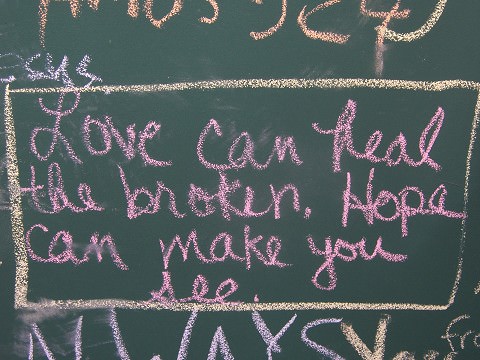 AMOS
Love can heal
the broken. Hope
can make you
see.
ALWAYS